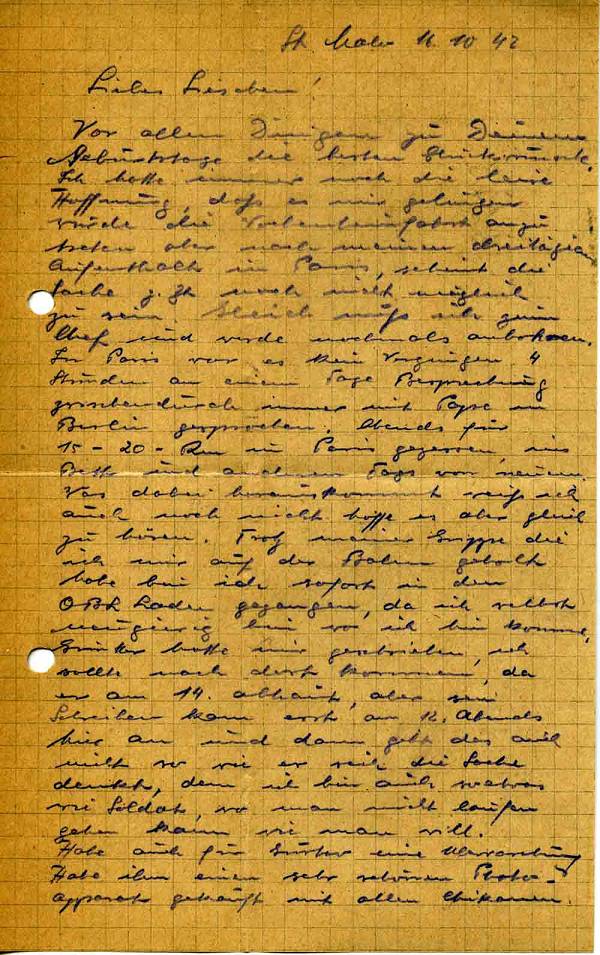 St. Malo 11 10 42
Liebes Lieschen!
Vor allen Dingen zu Deinem
Geburtstage die besten Glückwünsche.
Ich hatte immer noch die leise
Hoffnung, dass es mir gelingen
würde die anzu
treten aber nach meinem dreitägigen
Aufenthalt in Paris, scheint die
Sache z. Zt. noch nicht möglich
zu sein. Gleich muß ich zum
Chef und werde nochmals anbohren.
In Paris war es kein Vergnügen 4
Stunden an einem Tage Besprechung
zwischendurch immer mit in
Berlin gesprochen. Abends für
15 - 20 - Rm in Paris gegessen, ins
Bett und anderen Tags von neuem.
Was dabei herauskommt weiß ich
auch noch nicht hoffe es aber gleich
zu hören. Trotz meiner Grippe die
ich mir auf der Bahn geholt
habe bin ich sofort in den
Laden gegangen, da ich selbst
neugierig bin wo ich hin komme.
Günter hatte mir geschrieben, ich
sollte nach dort kommen, da
er am 14. abhaut, aber sein
Schreiben kam erst am 12. Abends
hier an und dann geht das auch
nicht so wie er sich die Sache
denkt, denn ich bin auch so etwas
wie Soldat, wo man nicht laufen
gehen kann wie man will.
Habe auch für Günter eine Überraschung
Habe ihm einen sehr schönen Photo-
apparat gekauft mit allen Chikanen.